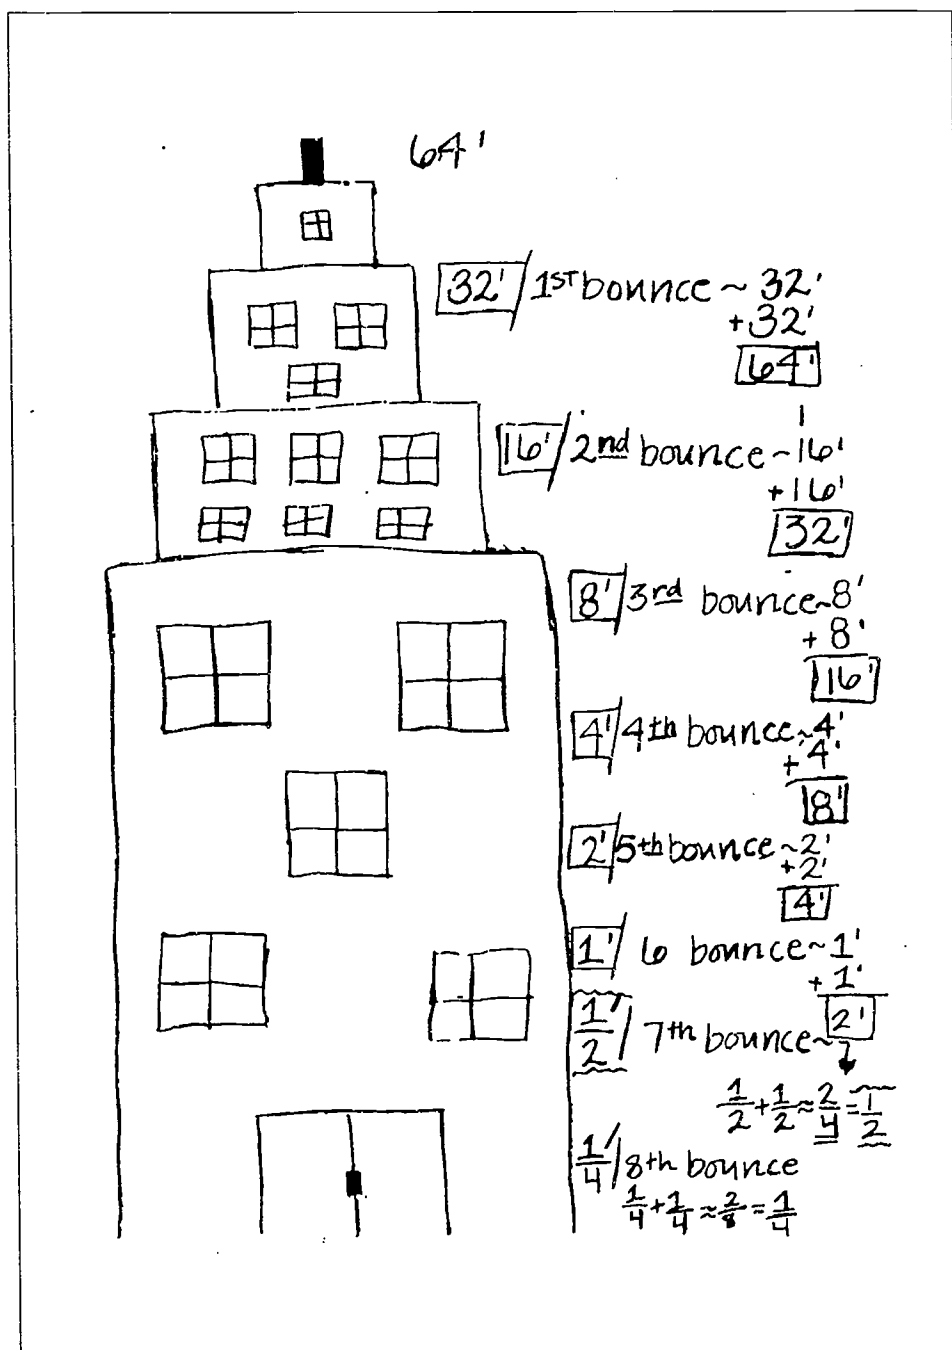 64'
32' / 1ST bounce ~ 32'
+32'
64'
1
16' / 2nd bounce ~ 16'
+16'
32'
8' / 3rd bounce ~ 8'
+ 8'
16'
4' / 4th bounce ~ 4'
+ 4'
8'
2' / 5th bounce ~ 2'
+2'
4'
1' / 6 bounce ~ 1'
+ 1'
2'
1/2' / 7th bounce ~
1/2 + 1/2 ≈ 2/4 = 1/2
1/4' / 8th bounce
1/4 + 1/4 ≈ 2/8 = 1/4